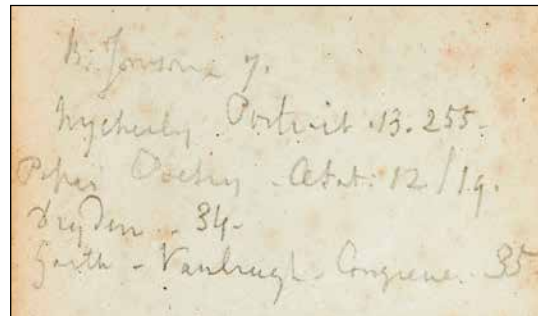 B. Jonson 7.
Wycherly Portrait 13. 255.
Popes Poetry - Aetat: 12/19.
Dryden - 34.
Garth - Vanbrugh - Congreve - 35.